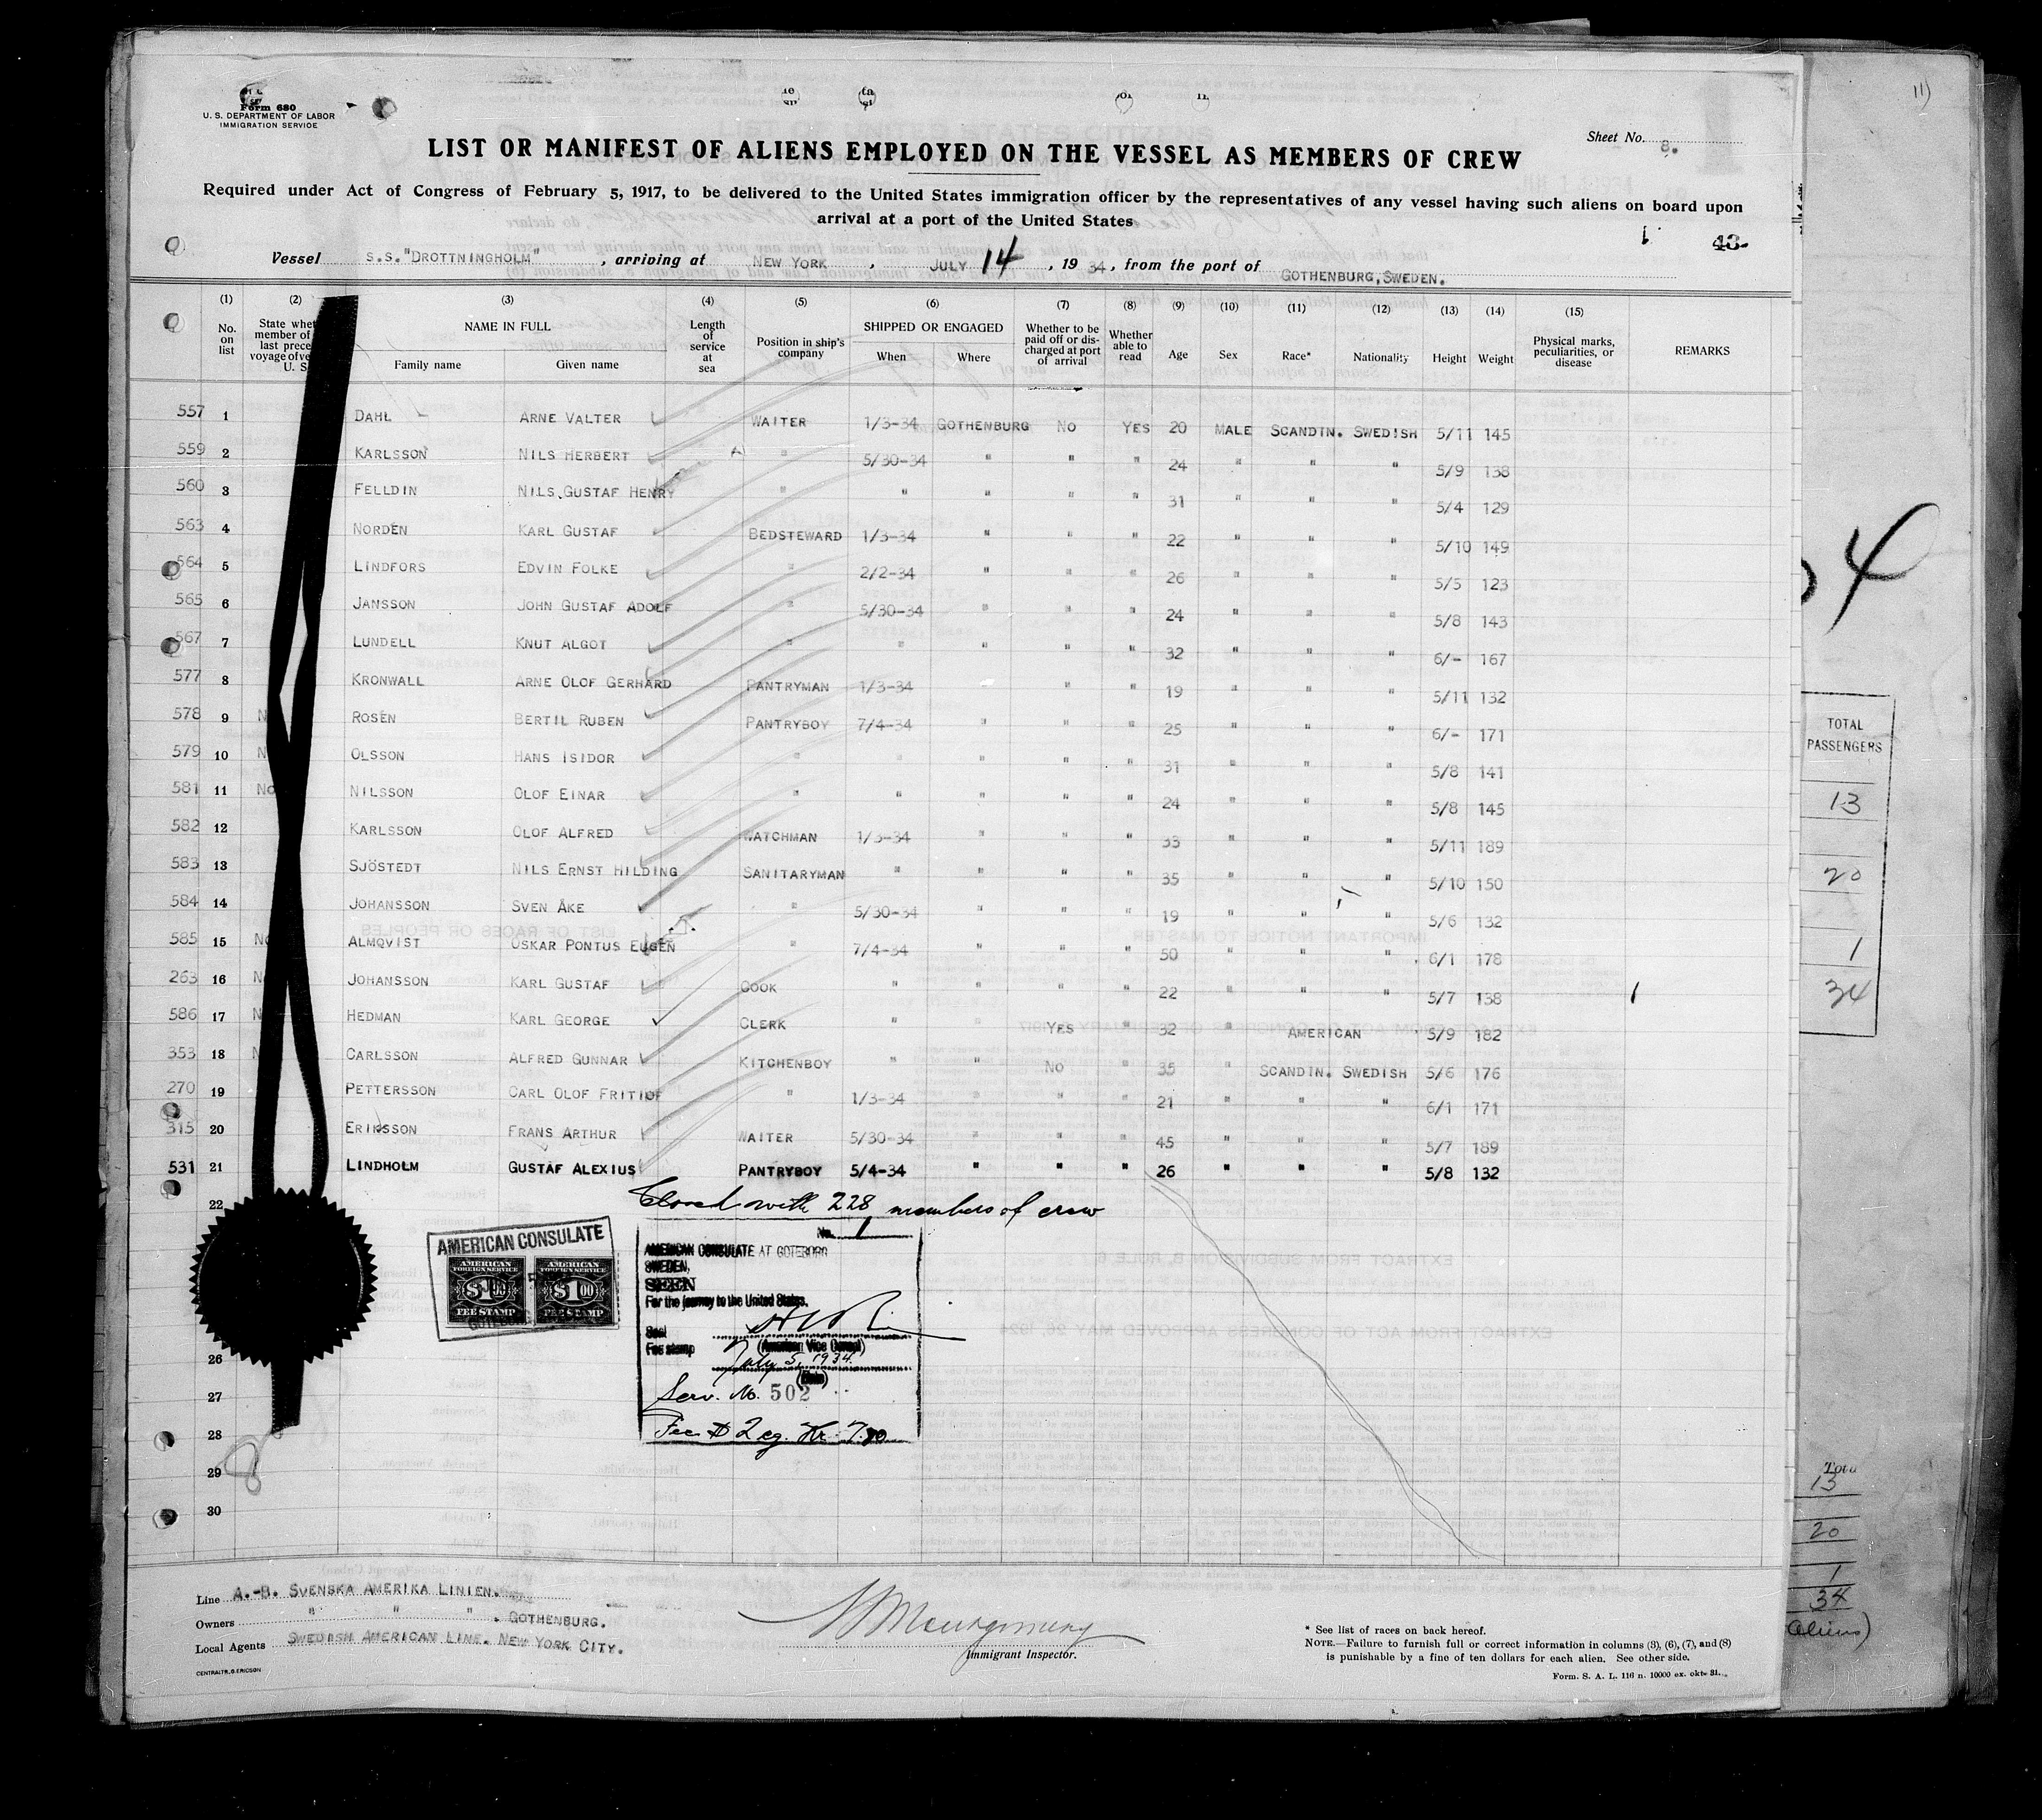 Form 680
U. S. DEPARTMENT OF LABOR
IMMIGRATION SERVICE
11)
Sheet No. 8.
LIST OR MANIFEST OF ALIENS EMPLOYED ON THE VESSEL AS MEMBERS OF CREW
Required under Act of Congress of February 5, 1917, to be delivered to the United States immigration officer by the representatives of any vessel having such aliens on board upon
arrival at a port of the United States
43
Vessel S.S."DROTTNINGHOLM", arriving at NEW YORK, JULY 14, 1934, from the port of GOTHENBURG, SWEDEN.
(1) (2) (3) (4) (5) (6) (7) (8) (9) (10) (11) (12) (13) (14) (15)
No. on list
State whet
member of
last prece
voyage of ve
U. S
NAME IN FULL
Family name Given name
Length of service at sea
Position in ship's company
SHIPPED OR ENGAGED
When Where
Whether to be paid off or discharged at port of arrival
Whether able to read
Age Sex Race* Nationality Height Weight
Physical marks, peculiarities, or disease
REMARKS
557 1 DAHL ARNE VALTER WAITER 1/3-34 GOTHENBURG NO YES 20 MALE SCANDIN. SWEDISH 5/11 145
559 2 KARLSSON NILS HERBERT " 5/30-34 " " " 24 " " " 5/9 138
560 3 FELLDIN NILS GUSTAF HENRY " " " " " 31 " " " 5/4 129
563 4 NORDÉN KARL GUSTAF BEDSTEWARD 1/3-34 " " " 22 " " " 5/10 149
564 5 LINDFORS EDVIN FOLKE " 2/2-34 " " " 26 " " " 5/5 123
565 6 JANSSON JOHN GUSTAF ADOLF " 5/30-34 " " " 24 " " " 5/8 143
567 7 LUNDELL KNUT ALGOT " " " " " 32 " " " 6/- 167
577 8 KRONWALL ARNE OLOF GERHARD PANTRYMAN 1/3-34 " " 19 " " " 5/11 132
578 9 N ROSÉN BERTIL RUBEN PANTRYBOY 7/4-34 " " " 25 " " " 6/- 171
579 10 N OLSSON HANS ISIDOR " " " " " 31 " " " 5/8 141
581 11 No NILSSON OLOF EINAR " " " " " 24 " " " 5/8 145
582 12 KARLSSON OLOF ALFRED WATCHMAN 1/3-34 " " " 33 " " " 5/11 189
583 13 SJÖSTEDT NILS ERNST HILDING SANITARYMAN " " " " 35 " " " 5/10 150
584 14 JOHANSSON SVEN ÅKE " 5/30-34 " " " 19 " " " 5/6 132
585 15 No ALMQVIST OSKAR PONTUS EUGÉN " 7/4-34 " " " 50 " " " 6/1 178
263 16 N JOHANSSON KARL GUSTAF COOK " " " " 22 " " " 5/7 138
586 17 N HEDMAN KARL GEORGE CLERK " " YES " 32 " AMERICAN 5/9 182
353 18 N CARLSSON ALFRED GUNNAR KITCHENBOY " " NO " 35 " SCANDIN. SWEDISH 5/6 176
270 19 PETTERSSON CARL OLOF FRITIOF " 1/3-34 " " " 21 " " " 6/1 171
315 20 ERIKSSON FRANS ARTHUR WAITER 5/30-34 " " " 45 " " " 5/7 189
531 21 LINDHOLM GUSTAF ALEXIUS PANTRYBOY 5/4-34 " " " 26 " " " 5/8 132
22
Closed with 228 members of crew
AMERICAN CONSULATE
AMERICAN FOREIGN SERVICE $1.00 FEE STAMP
AMERICAN FOREIGN SERVICE $1.00 FEE STAMP
No. 1
AMERICAN CONSULATE AT GOTEBORG
SWEDEN,
SEEN
For the journey to the United States.
Seal
(American Vice Consul)
Fee stamp July 5, 1934.
(Date)
Serv. No. 502
Fee $ 2 eq. Kr. 7.80
26
27
28
29
30
8
Line A.-B. SVENSKA AMERIKA LINIEN.
Owners " " " . GOTHENBURG.
Local Agents SWEDISH AMERICAN LINE. NEW YORK CITY.
CENTRALTR. G. ERICSON
Montgomery
Immigrant Inspector.
* See list of races on back hereof.
NOTE.—Failure to furnish full or correct information in columns (3), (6), (7), and (8)
is punishable by a fine of ten dollars for each alien. See other side.
Form. S. A. L. 116 n. 10000 ex. okt. 31.
4
TOTAL
PASSENGERS
13
20
1
34
Tota
13
20
1
34
(aliens)